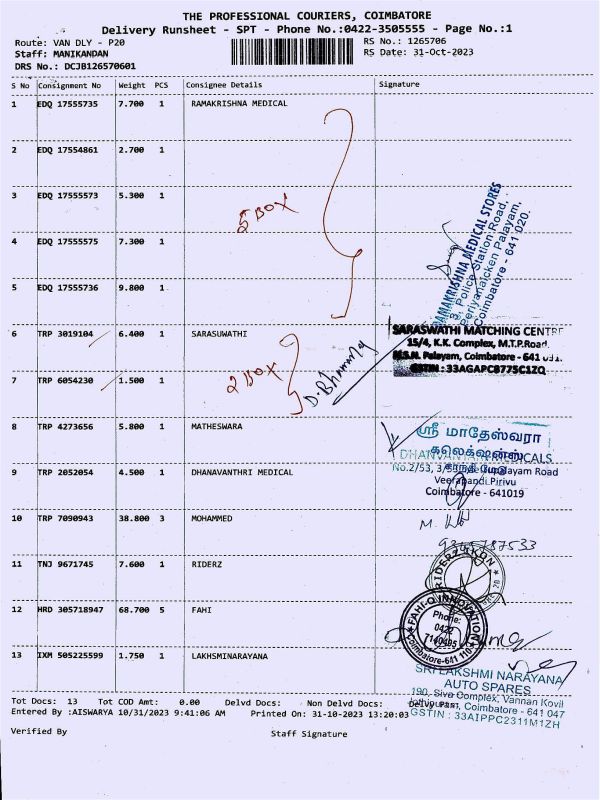 THE PROFESSIONAL COURIERS, COIMBATORE
Delivery Runsheet - SPT - Phone No.:0422-3505555 - Page No.:1
Route: VAN DLY - P20
RS No.: 1265706
Staff: MANIKANDAN
RS Date: 31-Oct-2023
DRS No.: DCJB126570601
S No Consignment No Weight PCS Consignee Details Signature
1 EDQ 17555735 7.700 1 RAMAKRISHNA MEDICAL
2 EDQ 17554861 2.700 1
3 EDQ 17555573 5.300 1
5 BOX
4 EDQ 17555575 7.300 1
5 EDQ 17555736 9.800 1
RAMAKRISHNA MEDICAL STORES
Police Station Road,
Periyanaicken Palayam,
Coimbatore - 641 020.
6 TRP 3019104 6.400 1 SARASUWATHI
SARASWATHI MATCHING CENTRE
15/4, K.K. Complex, M.T.P.Road,
N.S.N. Palayam, Coimbatore - 641 031.
GSTIN : 33AGAPC8775C1ZQ
7 TRP 6054230 1.500 1
2 BOX
8 TRP 4273656 5.800 1 MATHESWARA
ஸ்ரீ மாதேஸ்வரா
கலெக்ஷன்ஸ்
9 TRP 2052054 4.500 1 DHANAVANTHRI MEDICAL
MEDICALS
Veerapandi Pirivu
Coimbatore - 641019
10 TRP 7090943 38.800 3 MOHAMMED
11 TNJ 9671745 7.600 1 RIDERZ
RIDERZ IKON
12 HRD 305718947 68.700 5 FAHI
FAHI-Q INNOVATION
Phone:
0422
Coimbatore-641 110
13 IXM 505225599 1.750 1 LAKHSMINARAYANA
SRI LAKSHMI NARAYANA
AUTO SPARES
190, Siva Complex, Vannan Kovil
Jothipuram, Coimbatore - 641 047
GSTIN : 33AIPPC2311M1ZH
Tot Docs: 13 Tot COD Amt: 0.00 Delvd Docs: Non Delvd Docs:
Entered By :AISWARYA 10/31/2023 9:41:06 AM Printed On: 31-10-2023 13:20:03
Verified By Staff Signature